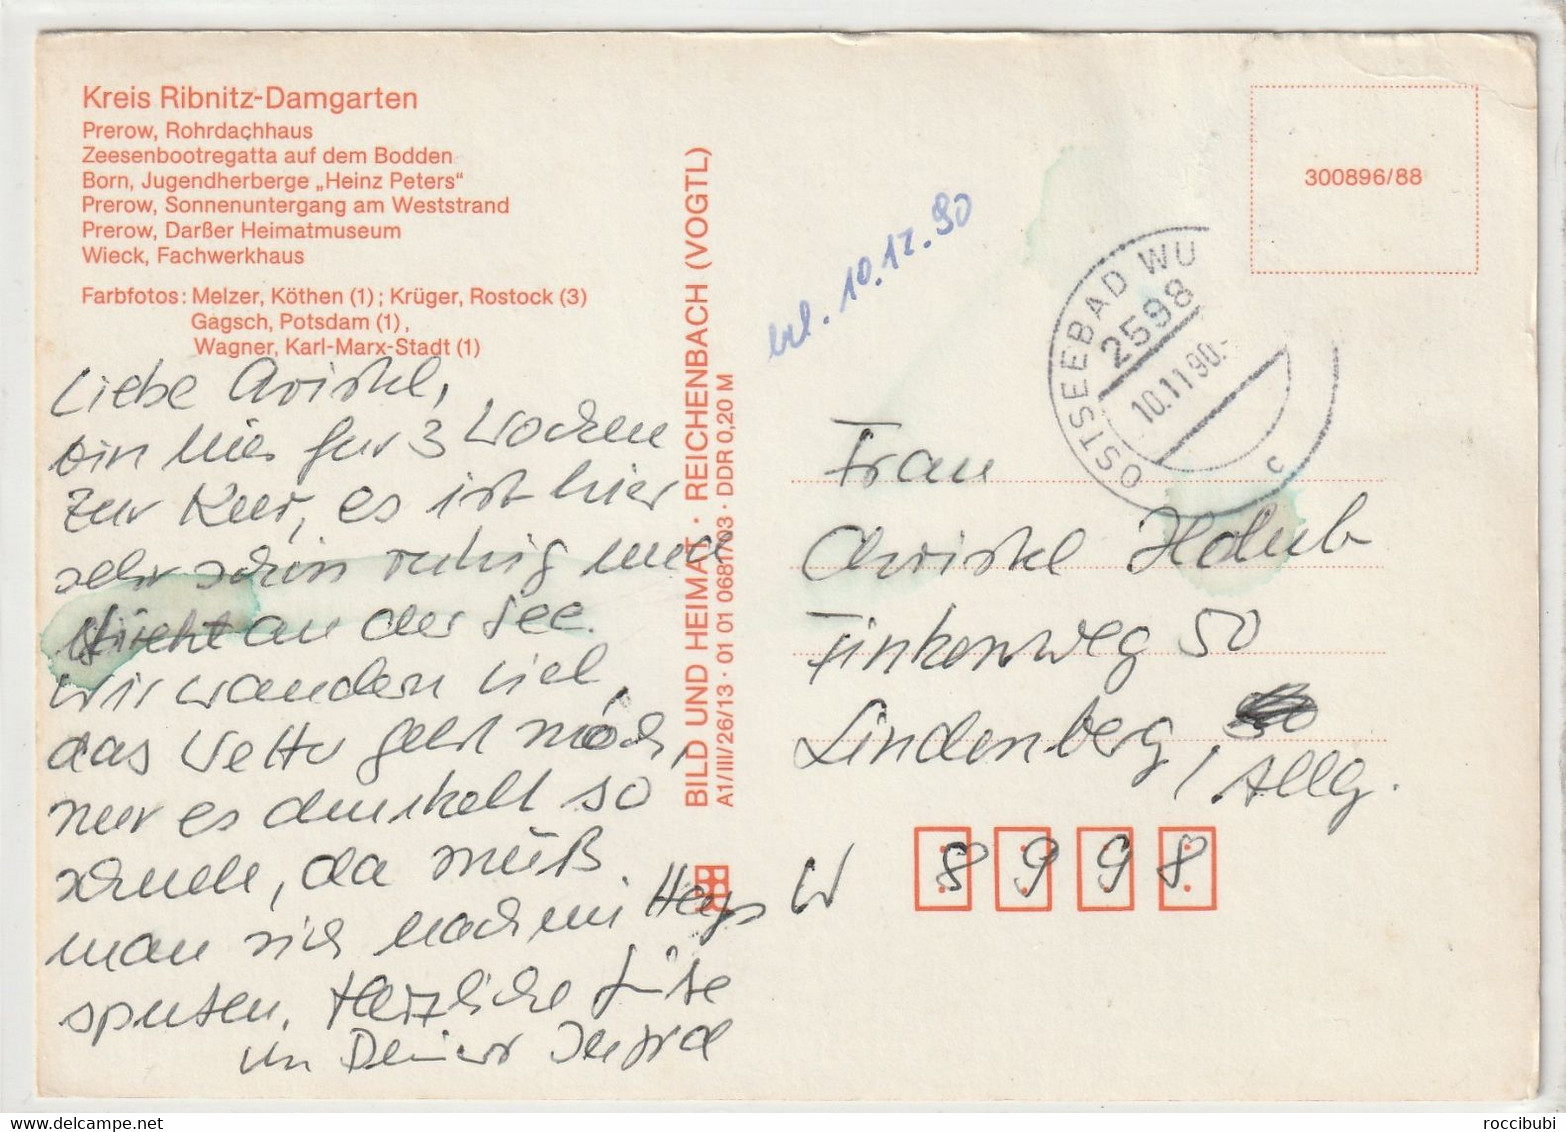 Kreis Ribnitz-Damgarten
Prerow, Rohrdachhaus
Zeesenbootregatta auf dem Bodden
Born, Jugendherberge „Heinz Peters“
Prerow, Sonnenuntergang am Weststrand
Prerow, Darßer Heimatmuseum
Wieck, Fachwerkhaus
Farbfotos: Melzer, Köthen (1); Krüger, Rostock (3)
Gagsch, Potsdam (1),
Wagner, Karl-Marx-Stadt (1)
Liebe Christel,
bin hier für 3 Wochen
zur Kur, es ist hier
sehr schön ruhig und
direkt an der See.
Wir wandern viel,
das Wetter geht noch,
nur es dunkelt so
schnell, da muß
man sich nachmi
sputen. Herzliche Grüße
von Deiner
BILD UND HEIMAT · REICHENBACH (VOGTL)
A1/III/26/13 · 01 01 0681/03 · DDR 0,20 M
bel. 10.12.90
300896/88
OSTSEEBAD WU
2598
10.11.90.-
c
Frau
Christel Holub
Finkenweg 50
Lindenberg,
/ Allg.
W 8998
roccibubi